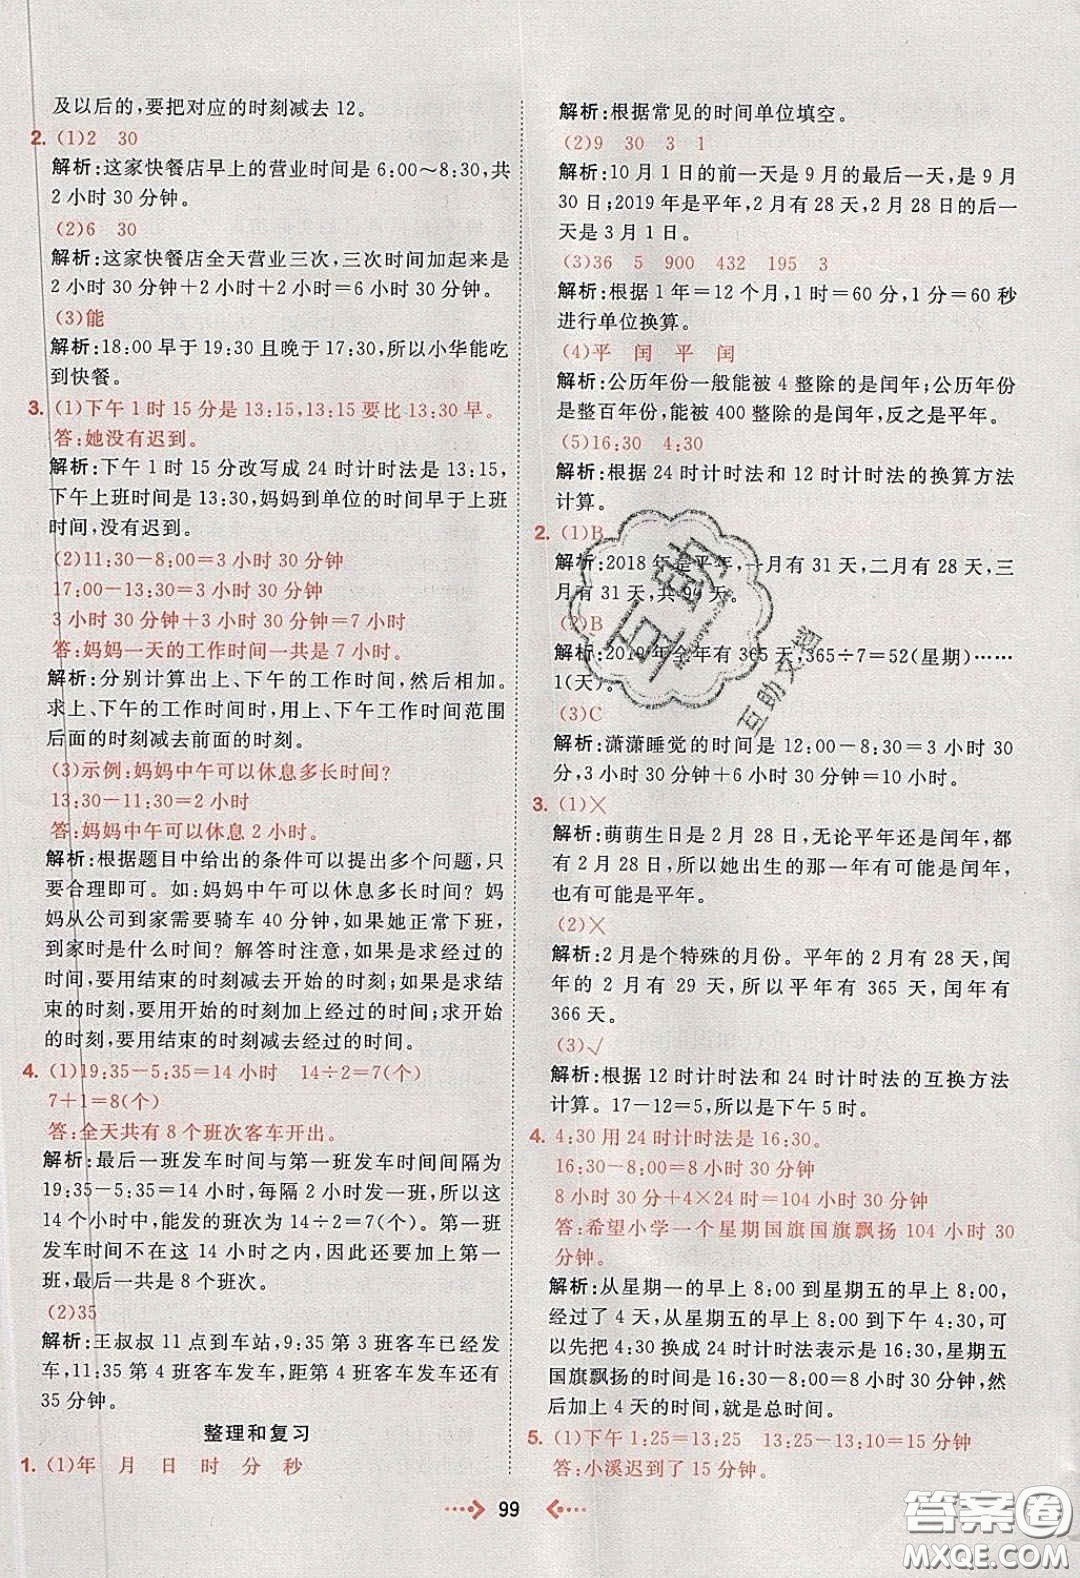 及以后的,要把对应的时刻减去 12。
2. (1)2 30
解析:这家快餐店早上的营业时间是 6:00~8:30,共
2 小时 30 分钟。
(2)6 30
解析:这家快餐店全天营业三次,三次时间加起来是
2 小时 30 分钟+2 小时+2 小时=6 小时 30 分钟。
(3)能
解析:18:00 早于 19:30 且晚于 17:30,所以小华能吃
到快餐。
3. (1)下午 1 时 15 分是 13:15,13:15 要比 13:30 早。
答:她没有迟到。
解析:下午 1 时 15 分改写成 24 时计时法是 13:15,
下午上班时间是 13:30,妈妈到单位的时间早于上班
时间,没有迟到。
(2)11:30-8:00=3 小时 30 分钟
17:00-13:30=3 小时 30 分钟
3 小时 30 分钟+3 小时 30 分钟=7 小时
答:妈妈一天的工作时间一共是 7 小时。
解析:分别计算出上、下午的工作时间,然后相加。
求上、下午的工作时间,用上、下午工作时间范围
后面的时刻减去前面的时刻。
(3)示例:妈妈中午可以休息多长时间?
13:30-11:30=2 小时
答:妈妈中午可以休息 2 小时。
解析:根据题目中给出的条件可以提出多个问题,只
要合理即可。如:妈妈中午可以休息多长时间?妈
妈从公司到家需要骑车 40 分钟,如果她正常下班,
到家时是什么时间?解答时注意,如果是求经过的
时间,要用结束的时刻减去开始的时刻;如果是求结
束的时刻,要用开始的时刻加上经过的时间;求开始
的时刻,要用结束的时刻减去经过的时间。
4. (1)19:35-5:35=14 小时 14÷2=7(个)
7+1=8(个)
答:全天共有 8 个班次客车开出。
解析:最后一班发车时间与第一班发车时间间隔为
19:35-5:35=14 小时,每隔 2 小时发一班,所以这
14 个小时中,能发的班次为 14÷2=7(个)。第一班
发车时间不在这 14 小时之内,因此还要再加上第一
班,最后一共是 8 个班次。
(2)35
解析:王叔叔 11 点到车站,9:35 第 3 班客车已经发
车,11:35 第 4 班客车发车,距第 4 班客车发车还有
35 分钟。
整理和复习
1. (1)年 月 日 时 分 秒
解析:根据常见的时间单位填空。
(2)9 30 3 1
解析:10 月 1 日的前一天是 9 月的最后一天,是 9 月
30 日;2019 年是平年,2 月有 28 天,2 月 28 日的后一
天是 3 月 1 日。
(3)36 5 900 432 195 3
解析:根据 1 年=12 个月,1 时=60 分,1 分=60 秒
进行单位换算。
(4)平 闰 平 闰
解析:公历年份一般能被 4 整除的是闰年;公历年份
是整百年份,能被 400 整除的是闰年,反之是平年。
(5)16:30 4:30
解析:根据 24 时计时法和 12 时计时法的换算方法
计算。
2. (1)B
解析:2018 年是平年,一月有 31 天,二月有 28 天,三
月有 31 天,共 90 天。
(2)B
解析:2019 年全年有 365 天,365÷7=52(星期)……
1(天)。
(3)C
解析:潇潇睡觉的时间是 12:00-8:30=3 小时 30
分,3 小时 30 分钟+6 小时 30 分钟=10 小时。
3. (1)×
解析:萌萌生日是 2 月 28 日,无论平年还是闰年,都
有 2 月 28 日,所以她出生的那一年有可能是闰年,
也有可能是平年。
(2)×
解析:2 月是个特殊的月份。平年的 2 月有 28 天,闰
年的 2 月有 29 天,所以平年有 365 天,闰年有
366 天。
(3)√
解析:根据 12 时计时法和 24 时计时法的互换方法
计算。17-12=5,所以是下午 5 时。
4. 4:30 用 24 时计时法是 16:30。
16:30-8:00=8 小时 30 分钟
8 小时 30 分+4×24 时=104 小时 30 分钟
答:希望小学一个星期国旗国旗飘扬 104 小时 30
分钟。
解析:从星期一的早上 8:00 到星期五的早上 8:00,
经过了 4 天,从星期五的早上 8:00 到下午 4:30,可
以先把 4:30 换成 24 时计时法表示是 16:30,星期五
国旗飘扬的时间是 16:30-8:00=8 小时 30 分钟,
然后加上 4 天的时间,就是总时间。
5. (1)下午 1:25=13:25 13:25-13:10=15 分钟
答:小溪迟到了 15 分钟。
99
互助
互助文
答案圈
MXQE.COM